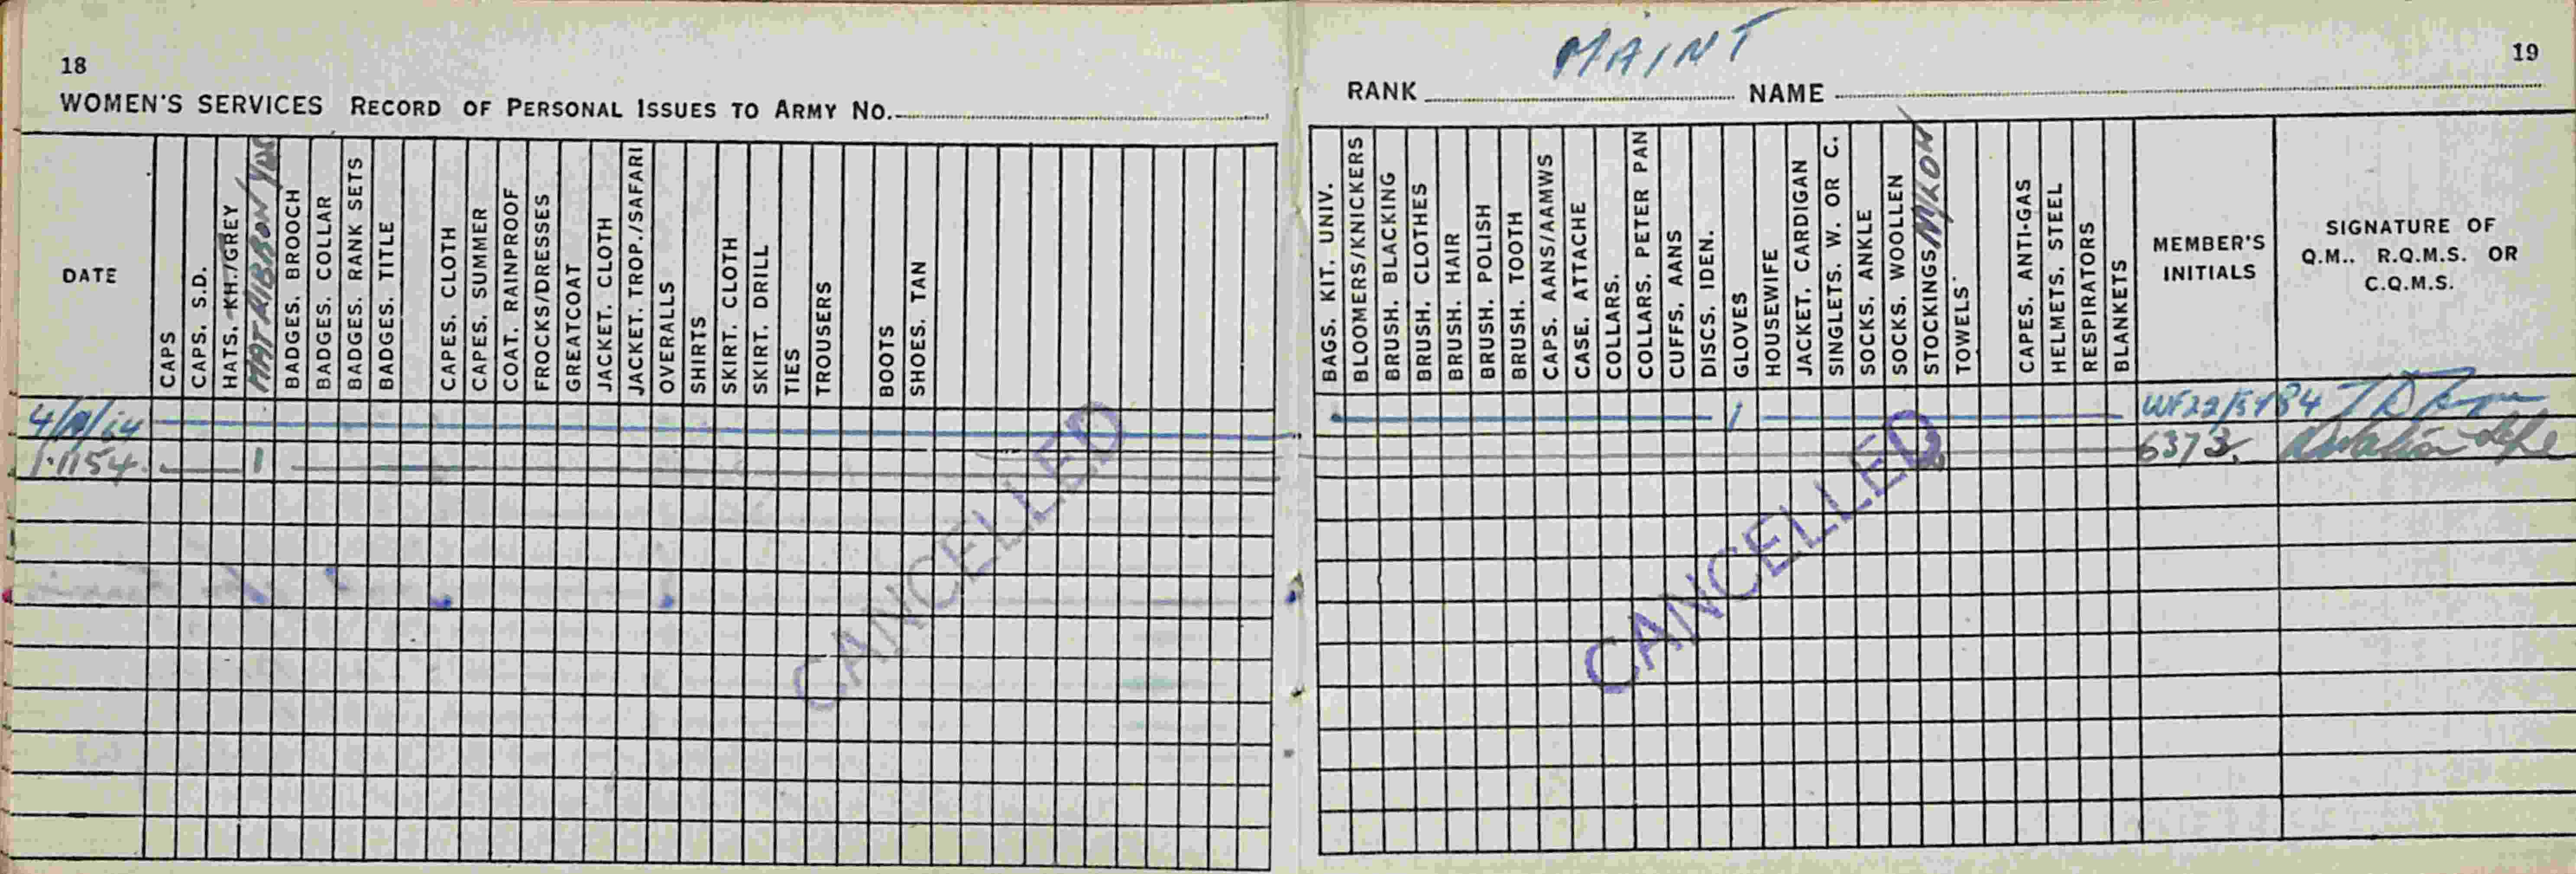 18
WOMEN'S SERVICES RECORD OF PERSONAL ISSUES TO ARMY No.
DATE
CAPS
CAPS. S.D.
HATS. KH./GREY
HAT RIBBON/YDS
BADGES. BROOCH
BADGES. COLLAR
BADGES. RANK SETS
BADGES. TITLE
CAPES. CLOTH
CAPES. SUMMER
COAT. RAINPROOF
FROCKS/DRESSES
GREATCOAT
JACKET. CLOTH
JACKET. TROP./SAFARI
OVERALLS
SHIRTS
SKIRT. CLOTH
SKIRT. DRILL
TIES
TROUSERS
BOOTS
SHOES. TAN
1.1154. 1
CANCELLED
MAINT
19
RANK NAME
BAGS. KIT. UNIV.
BLOOMERS/KNICKERS
BRUSH. BLACKING
BRUSH. CLOTHES
BRUSH. HAIR
BRUSH. POLISH
BRUSH. TOOTH
CAPS. AANS/AAMWS
CASE. ATTACHE
COLLARS.
COLLARS. PETER PAN
CUFFS. AANS
DISCS. IDEN.
GLOVES
HOUSEWIFE
JACKET. CARDIGAN
SINGLETS. W. OR C.
SOCKS. ANKLE
SOCKS. WOOLLEN
STOCKINGS
TOWELS
CAPES. ANTI-GAS
HELMETS. STEEL
RESPIRATORS
BLANKETS
MEMBER'S
INITIALS
SIGNATURE OF
Q.M.. R.Q.M.S. OR
C.Q.M.S.
1
6373.
CANCELLED